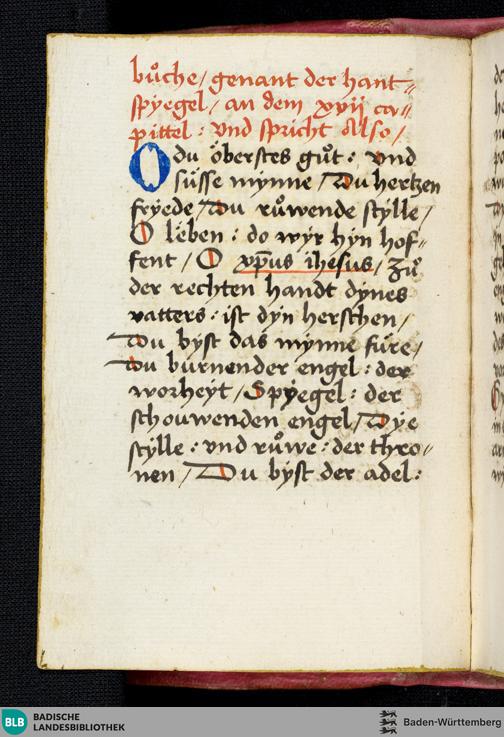 bůche / genant der hant⸗
spÿegel / an dem xvij ca⸗
pittel : vnd spricht Also /
O du öberstes gůt : vnd
sůsse mÿnne / Du hertzen
frÿede / Du růwende stÿlle /
O lëben : do wÿr hÿn hof⸗
fent / O xp̄us ihesus / Zů
der rechten handt dÿnes
vatters : ist dÿn herschen /
Du bÿst das mÿnne fúre /
Du búrnender engel : der
worheÿt / Spÿegel : der
schouwenden engel / Dÿe
stÿlle : vnd růwe : der thro⸗
nen / Du bÿst der adel :
BLB BADISCHE
LANDESBIBLIOTHEK
Baden-Württemberg